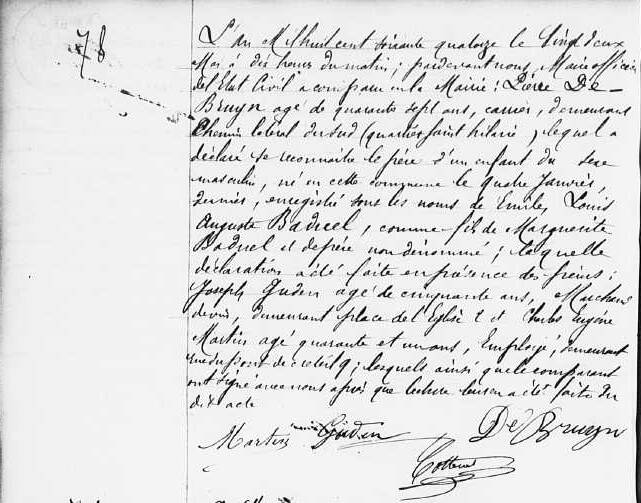 78
L'an Mil huit cent soixante quatorze le Vingt deux
Mai à dix heures du matin; pardevant nous, Maire officier
de l'Etat Civil a comparu en la Mairie: Pierre De-
Bruyn agé de quarante sept ans, carrier, demeurant
Chemin latéral du sud (quartier Saint hilaire), lequel a
déclaré se reconnaître le père d'un enfant du sexe
masculin, né en cette commune le quatre Janvier,
dernier, enregistré sous les noms de Emile, Louis
Auguste Baduel, comme fils de Marguerite
Baduel et de père non dénommé; laquelle
déclaration a été faite en présence des
Joseph Guden agé de cinquante ans, Marchand
de vin, demeurant place de l'Eglise 2 et Charles Eugène
Martin agé quarante et un ans, Employé, demeurant
rue du Pont de Creteil 9; lesquels ainsi que le comparant
ont signé avec nous après que lecture leur en a été faite du
dit acte
Martin Guden De Bruyn